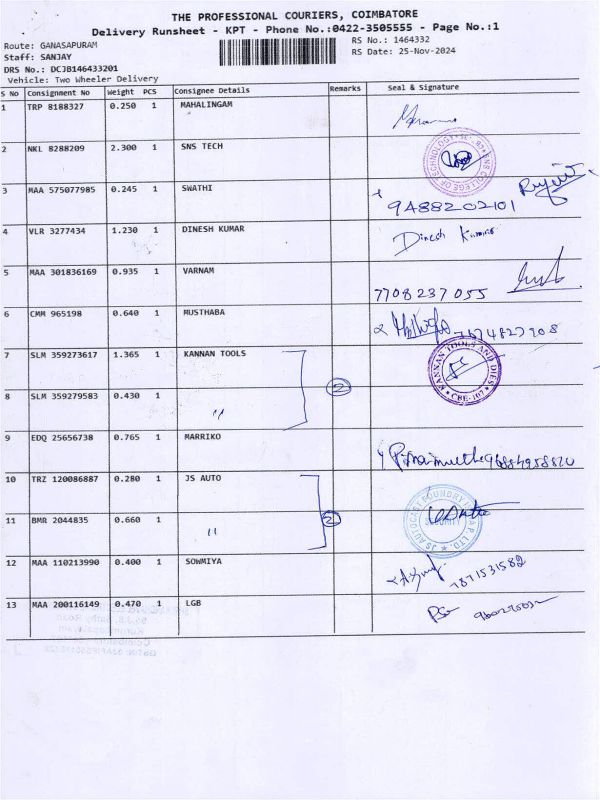 THE PROFESSIONAL COURIERS, COIMBATORE
Delivery Runsheet - KPT - Phone No.:0422-3505555 - Page No.:1
Route: GANASAPURAM
RS No.: 1464332
Staff: SANJAY
RS Date: 25-Nov-2024
DRS No.: DCJB146433201
Vehicle: Two Wheeler Delivery
S No Consignment No Weight PCS Consignee Details Remarks Seal & Signature
1 TRP 8188327 0.250 1 MAHALINGAM
2 NKL 8288209 2.300 1 SNS TECH
3 MAA 575077985 0.245 1 SWATHI 9488202101
4 VLR 3277434 1.230 1 DINESH KUMAR Dinesh Kumar
5 MAA 301836169 0.935 1 VARNAM 7708237055
6 CMM 965198 0.640 1 MUSTHABA
7 SLM 359273617 1.365 1 KANNAN TOOLS
KANNAN TOOLS AND DIES
★ CBE-107 ★
2
8 SLM 359279583 0.430 1 〃
9 EDQ 25656738 0.765 1 MARRIKO
10 TRZ 120086887 0.280 1 JS AUTO
JS AUTOCAST FOUNDRY
SECURITY
2
11 BMR 2044835 0.660 1 〃
12 MAA 110213990 0.400 1 SOWMIYA 7871531582
13 MAA 200116149 0.470 1 LGB